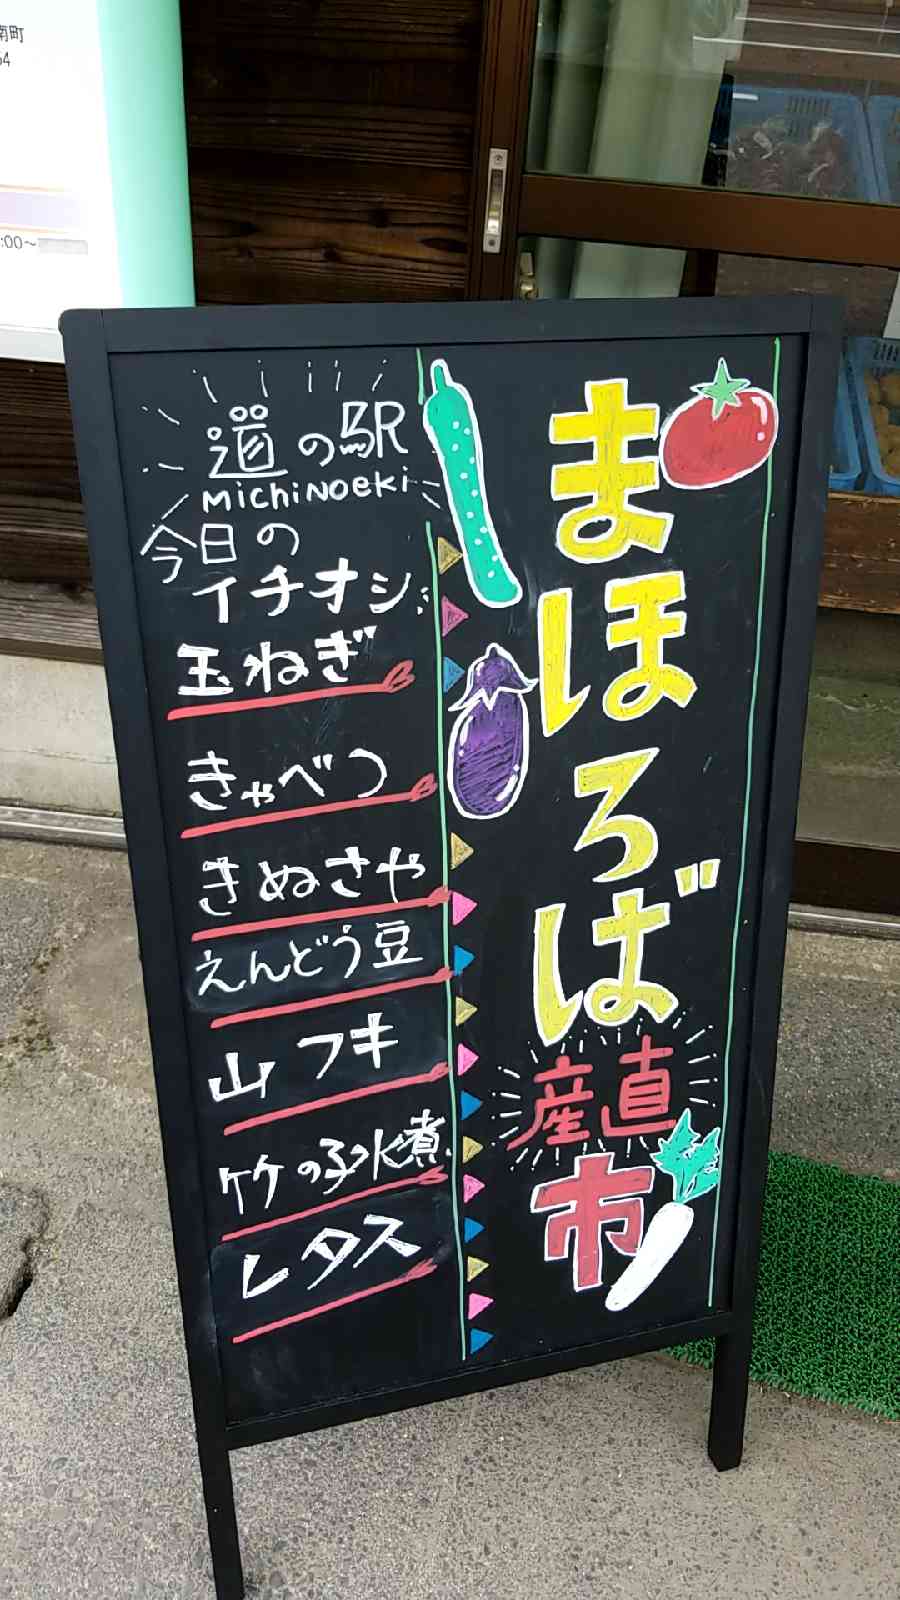 南町
54
:00～
道の駅
MichiNoeki
今日の
イチオシ
玉ねぎ
きゃべつ
きぬさや
えんどう豆
山フキ
竹の子水煮
レタス
まほろば
産直
市